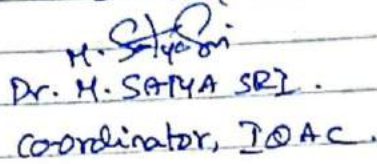 M. Satya Sri
Dr. M. SATYA SRI.
Coordinator, IQAC.